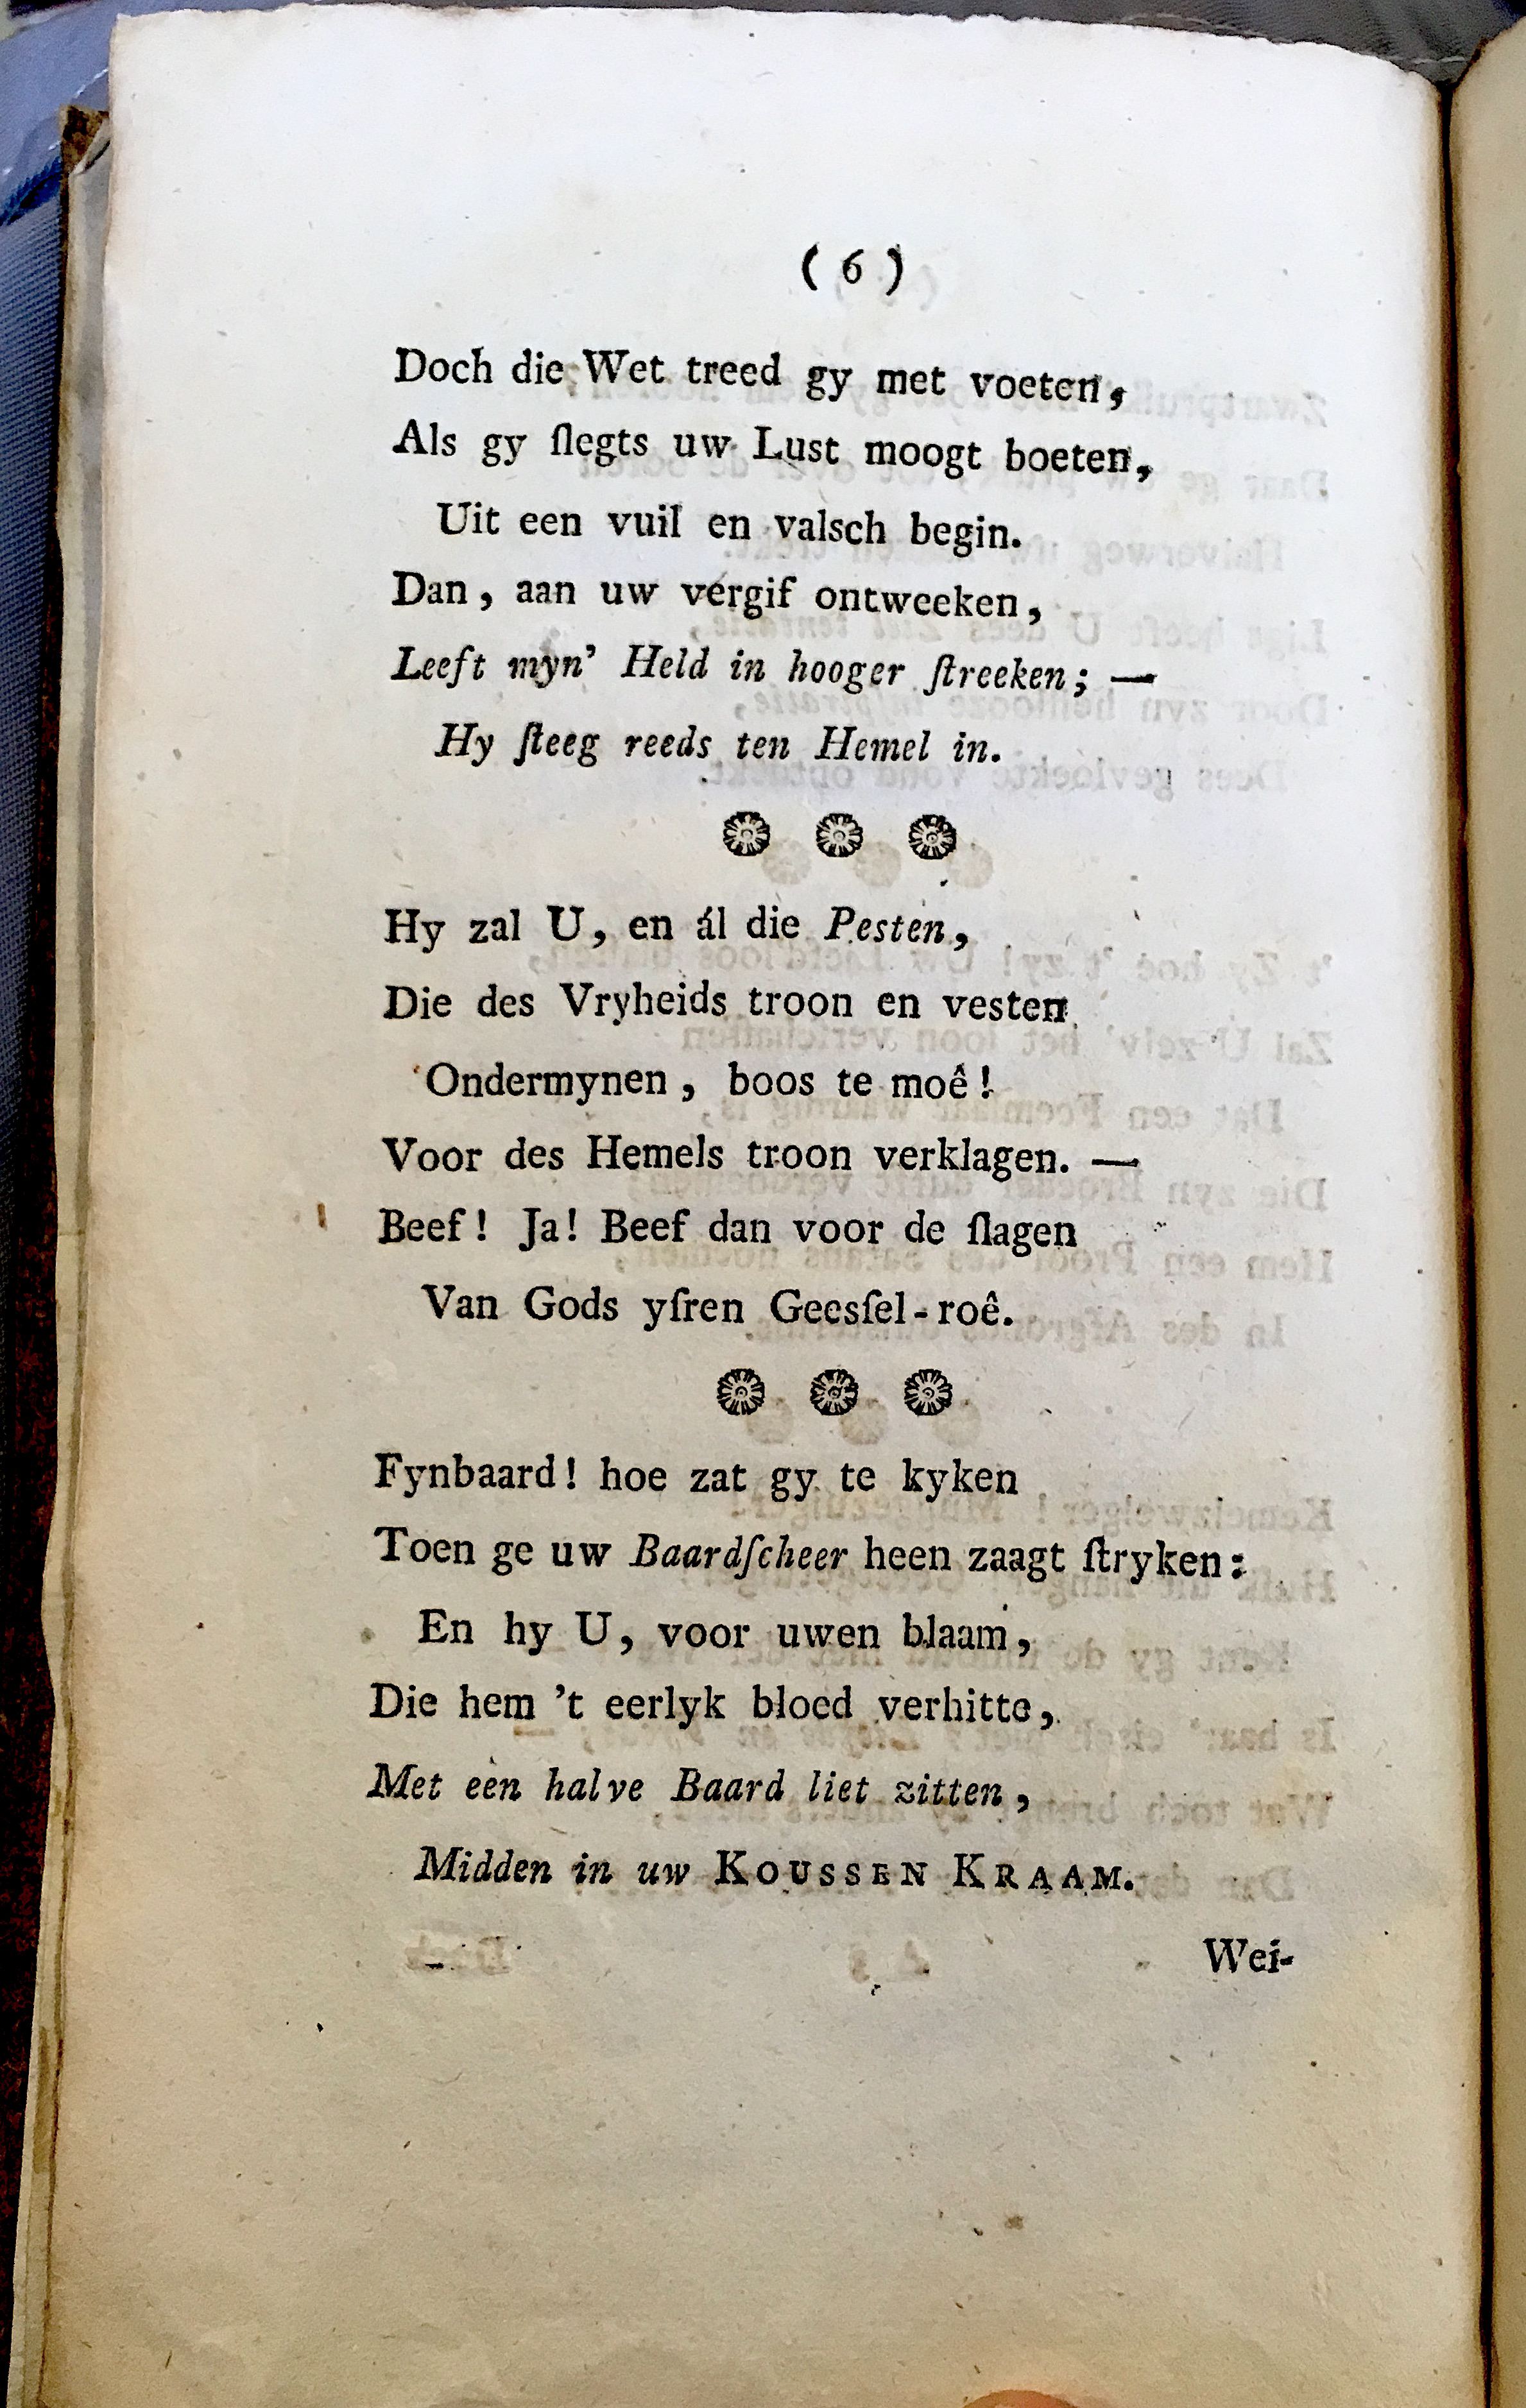 ( 6 )
Doch die Wet treed gy met voeten,
Als gy ſlegts uw Lust moogt boeten,
Uit een vuil en valsch begin.
Dan, aan uw vergif ontweeken,
Leeft myn' Held in hooger ſtreeken; —
Hy ſteeg reeds ten Hemel in.
Hy zal U, en ál die Pesten,
Die des Vryheids troon en vesten
Ondermynen, boos te moê!
Voor des Hemels troon verklagen. —
Beef! Ja! Beef dan voor de ſlagen
Van Gods yſren Geesſel-roê.
Fynbaard! hoe zat gy te kyken
Toen ge uw Baardſcheer heen zaagt ſtryken:
En hy U, voor uwen blaam,
Die hem 't eerlyk bloed verhitte,
Met een halve Baard liet zitten,
Midden in uw KOUSSEN KRAAM.
Wei-